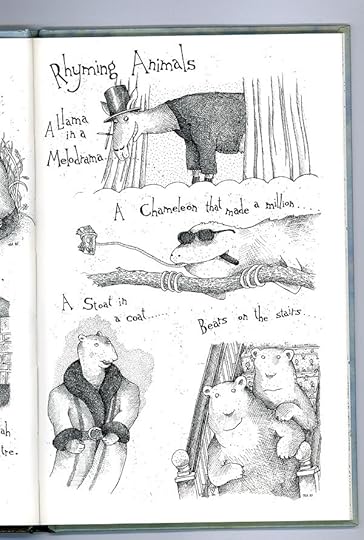 Rhyming Animals
A Llama
in a
Melodrama..
A Chameleon that made a million....
A Stoat in
a coat......
Bears on the stairs...
ah
tre.